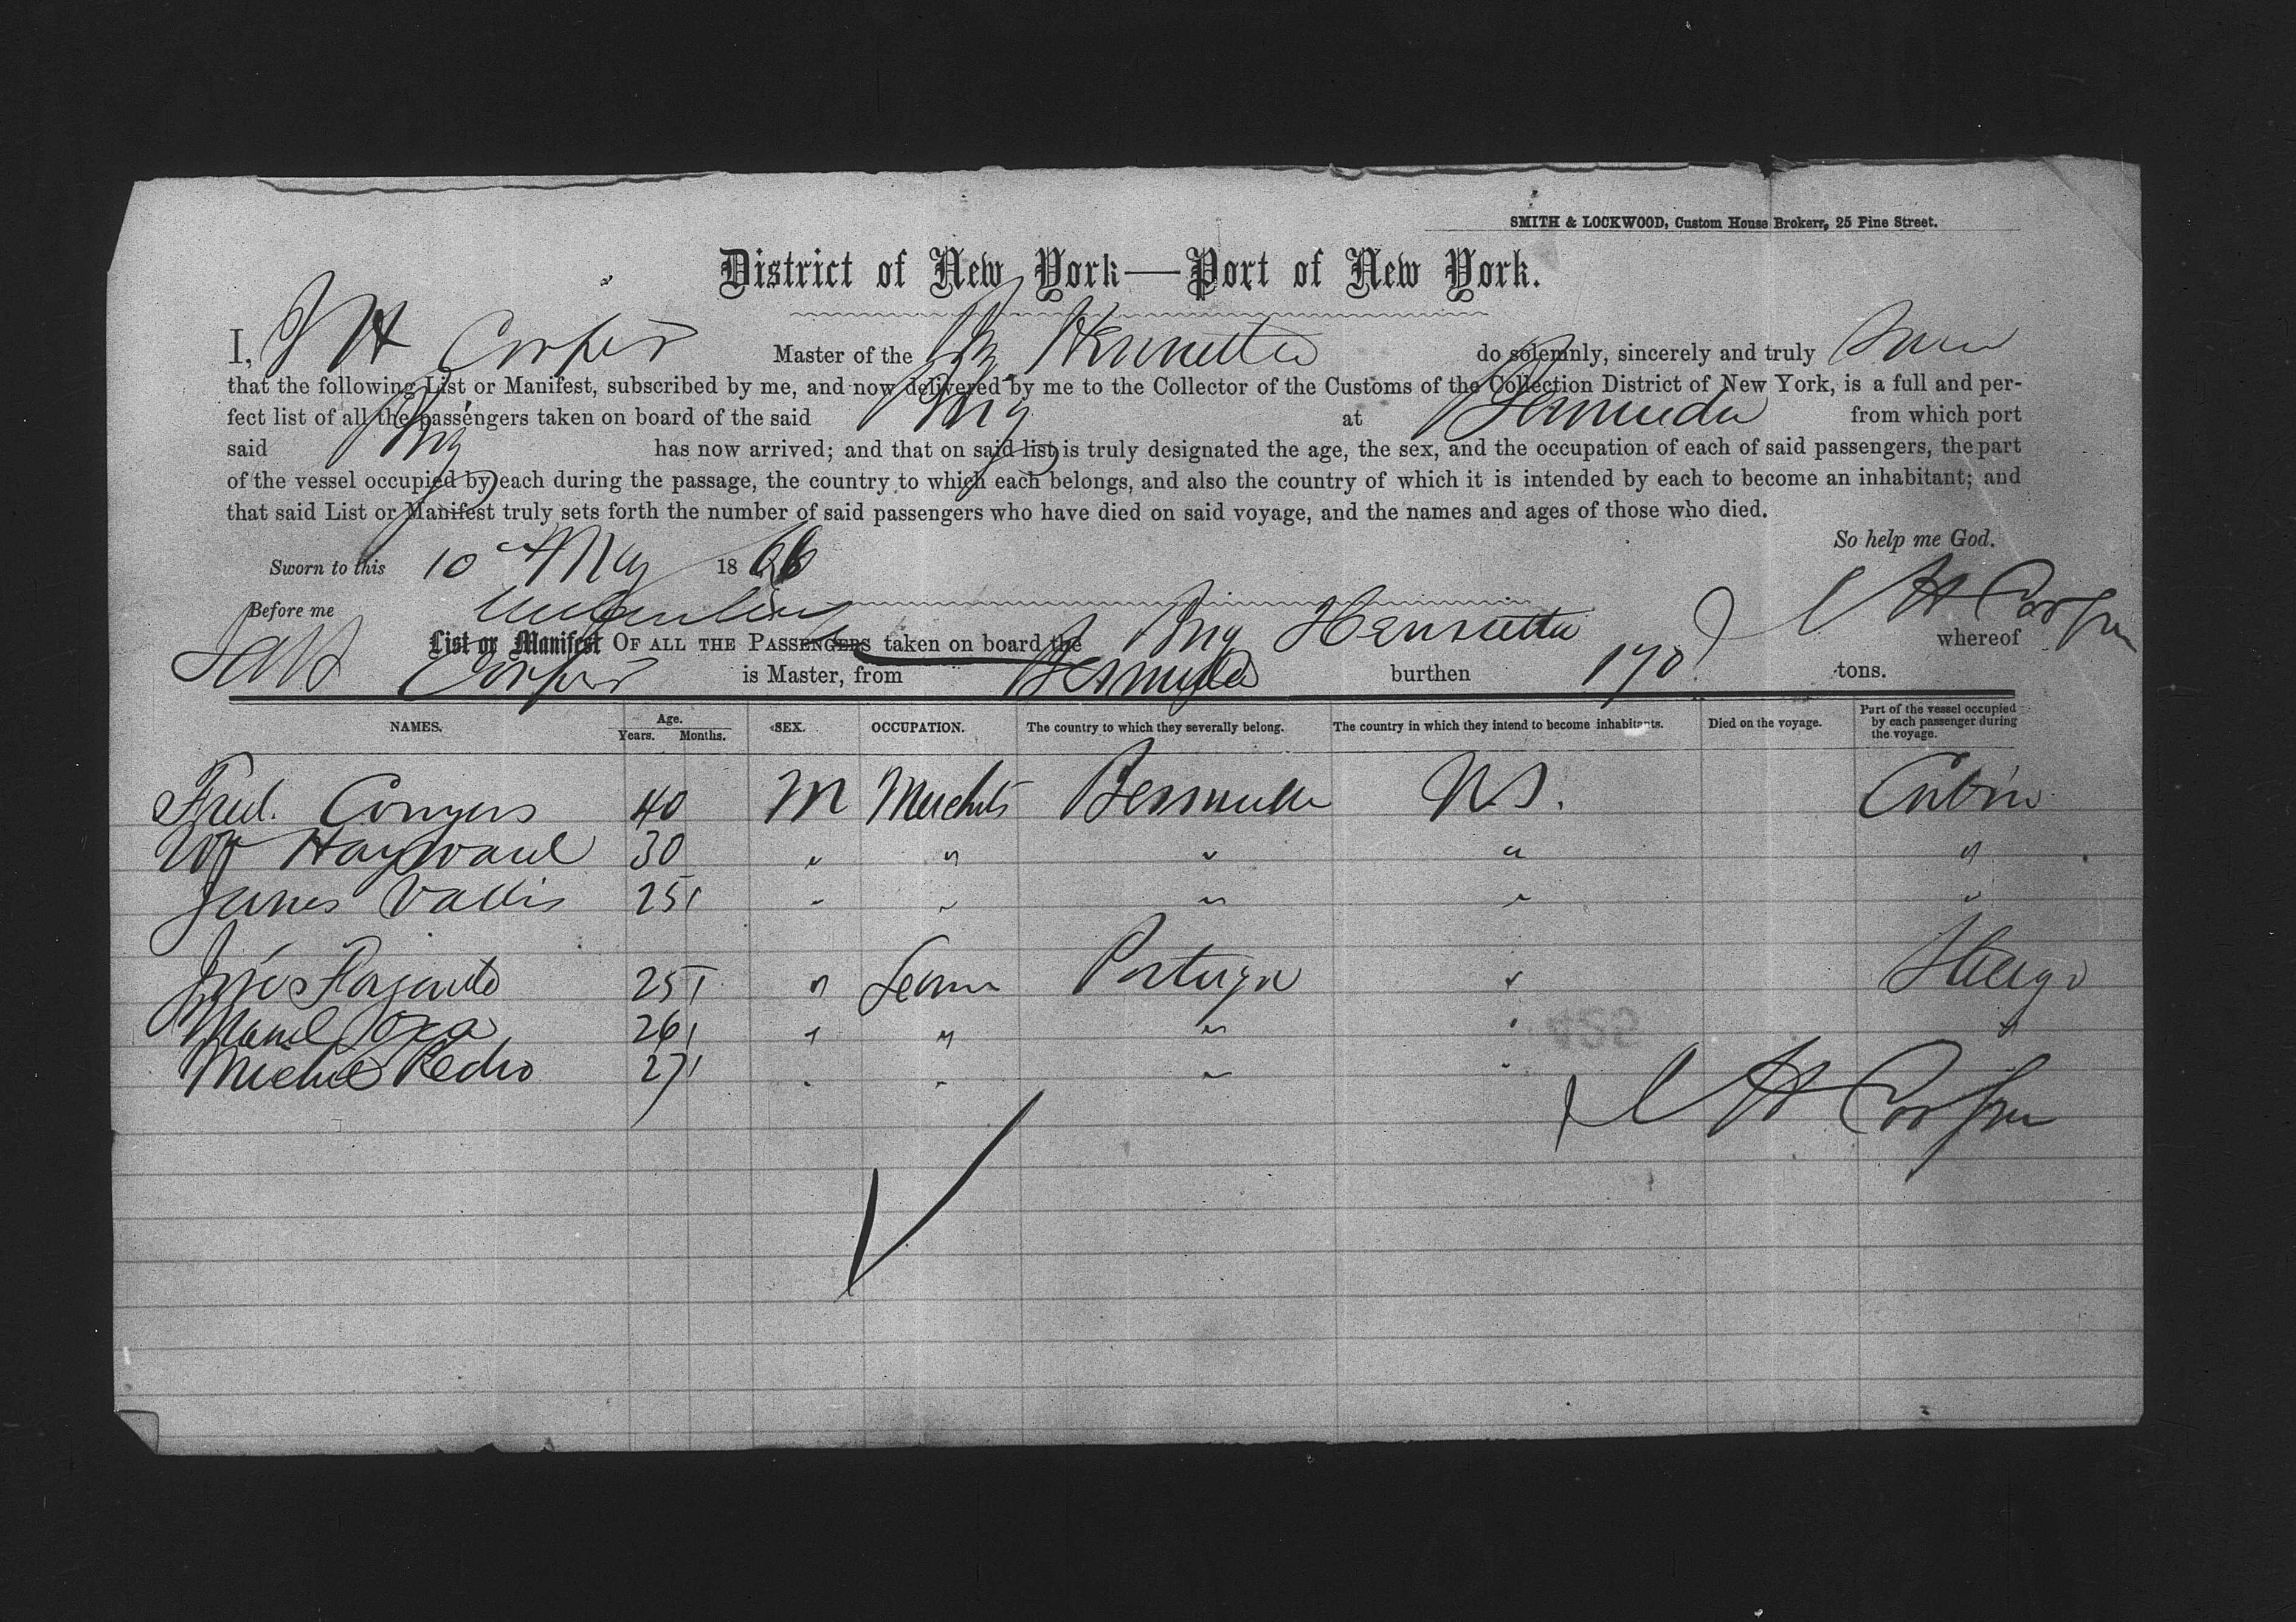 SMITH & LOCKWOOD, Custom House Brokers, 25 Pine Street.
District of New York—Port of New York.
I, J H Master of the Brig Henrietta do solemnly, sincerely and truly Swear
that the following List or Manifest, subscribed by me, and now delivered by me to the Collector of the Customs of the Collection District of New York, is a full and per-
fect list of all the passengers taken on board of the said Brig at Bermuda from which port
said Brig has now arrived; and that on said list is truly designated the age, the sex, and the occupation of each of said passengers, the part
of the vessel occupied by each during the passage, the country to which each belongs, and also the country of which it is intended by each to become an inhabitant; and
that said List or Manifest truly sets forth the number of said passengers who have died on said voyage, and the names and ages of those who died.
So help me God.
Sworn to this 10 May 1866
Before me
List or Manifest OF ALL THE PASSENGERS taken on board the Brig Henrietta whereof
is Master, from Bermuda burthen 170 tons.
NAMES. Age. Years. Months. SEX. OCCUPATION. The country to which they severally belong. The country in which they intend to become inhabitants. Died on the voyage. Part of the vessel occupied by each passenger during the voyage.
Fred. Conyers 40 M Merchts Bermuda U.S. Cabin
Wm Hayward 30 " " " " "
James Vallis 25 " " " " "
José 25 " Portugal " Steerge
Manuel 26 " " " " "
Michel Pedro 27 " " " "
J H